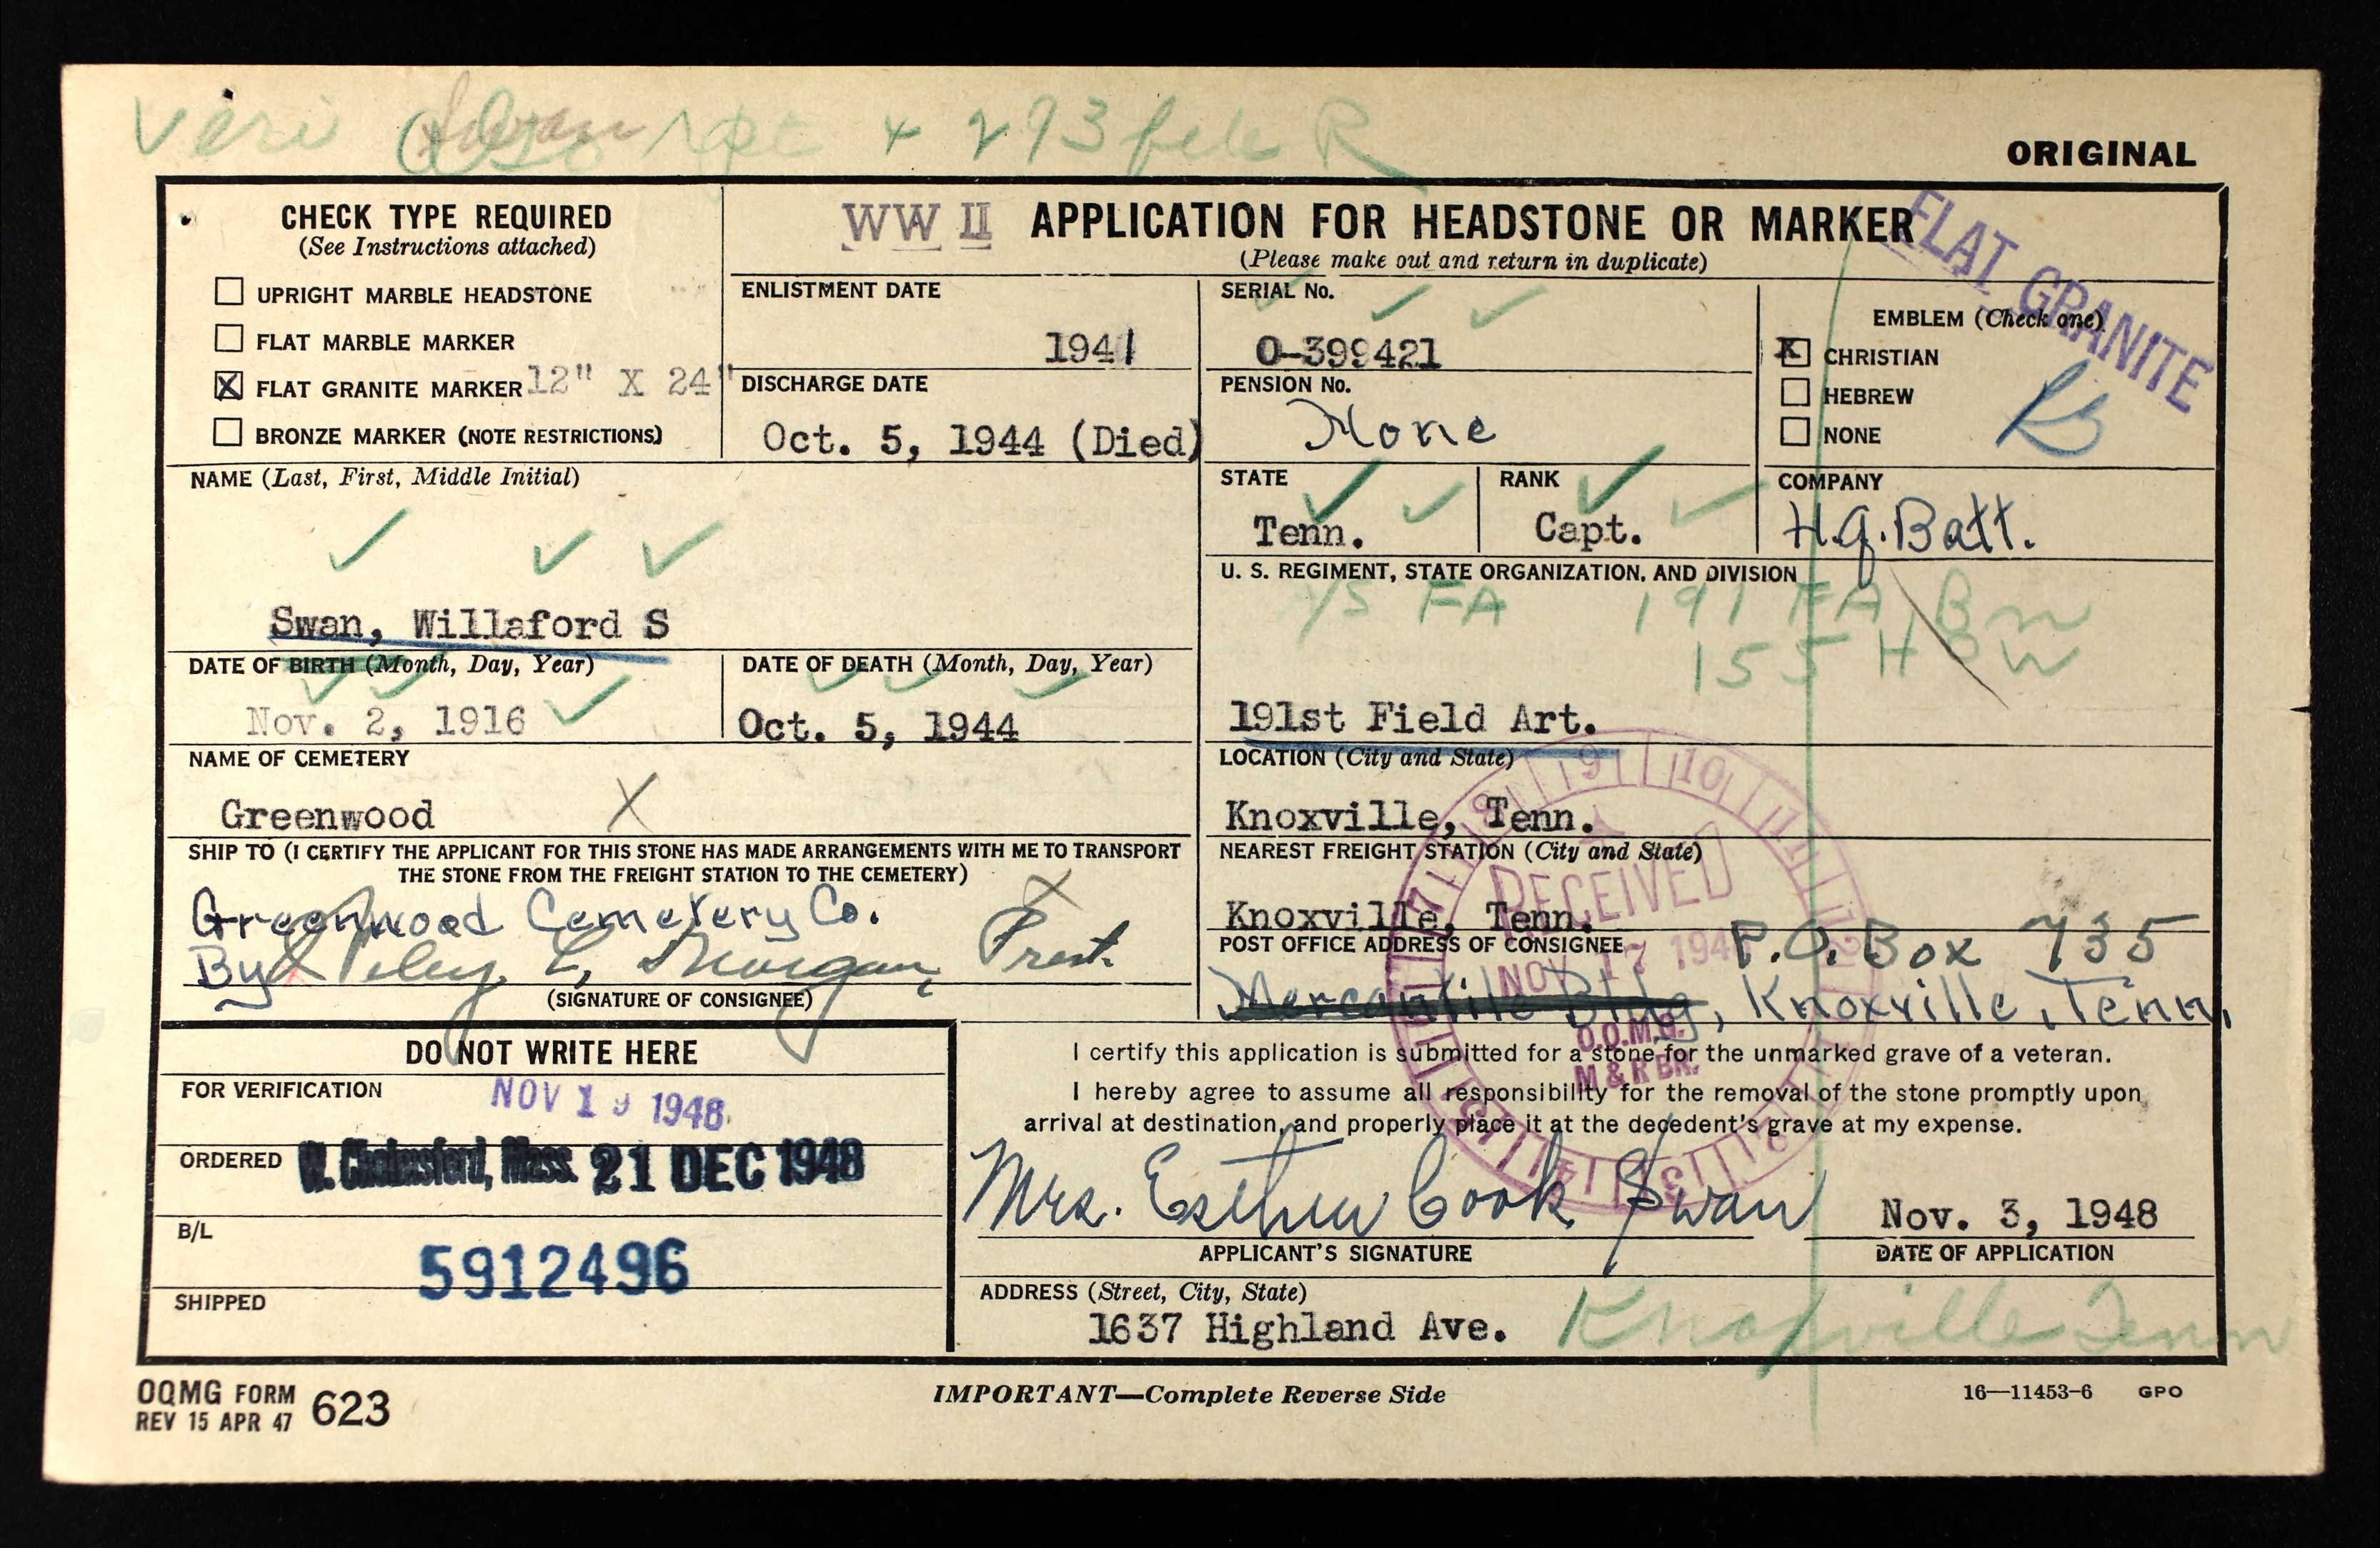 Veri Swan rpt + 293 file R
ORIGINAL
CHECK TYPE REQUIRED
(See Instructions attached)
UPRIGHT MARBLE HEADSTONE
FLAT MARBLE MARKER
X FLAT GRANITE MARKER 12" X 24"
BRONZE MARKER (NOTE RESTRICTIONS)
WW II APPLICATION FOR HEADSTONE OR MARKER
(Please make out and return in duplicate)
FLAT GRANITE
ENLISTMENT DATE
1941
SERIAL No.
O-399421
EMBLEM (Check one)
X CHRISTIAN
HEBREW
NONE
DISCHARGE DATE
Oct. 5, 1944 (Died)
PENSION No.
None
NAME (Last, First, Middle Initial)
Swan, Willaford S
STATE
Tenn.
RANK
Capt.
COMPANY
H.q. Batt.
U. S. REGIMENT, STATE ORGANIZATION, AND DIVISION
FA 191 FA Bn
155 HOW
191st Field Art.
DATE OF BIRTH (Month, Day, Year)
Nov. 2, 1916
DATE OF DEATH (Month, Day, Year)
Oct. 5, 1944
NAME OF CEMETERY
Greenwood X
LOCATION (City and State)
Knoxville, Tenn.
SHIP TO (I CERTIFY THE APPLICANT FOR THIS STONE HAS MADE ARRANGEMENTS WITH ME TO TRANSPORT
THE STONE FROM THE FREIGHT STATION TO THE CEMETERY)
Greenwood Cemetery Co.
By L. Morgan, Prest. X
(SIGNATURE OF CONSIGNEE)
NEAREST FREIGHT STATION (City and State)
Knoxville, Tenn.
POST OFFICE ADDRESS OF CONSIGNEE P.O. Box 735
Mercantile Bldg, Knoxville, Tenn.
RECEIVED
NOV 17 194
O.Q.M.G.
M & R BR.
DO NOT WRITE HERE
FOR VERIFICATION
NOV 19 1948
ORDERED W. Chelmsford, Mass. 21 DEC 1948
B/L
5912496
SHIPPED
I certify this application is submitted for a stone for the unmarked grave of a veteran.
I hereby agree to assume all responsibility for the removal of the stone promptly upon
arrival at destination, and properly place it at the decedent's grave at my expense.
Mrs. Esther Cook Swan
APPLICANT'S SIGNATURE
Nov. 3, 1948
DATE OF APPLICATION
ADDRESS (Street, City, State)
1637 Highland Ave. Knoxville Tenn
OQMG FORM 623
REV 15 APR 47
IMPORTANT—Complete Reverse Side
16—11453-6 GPO